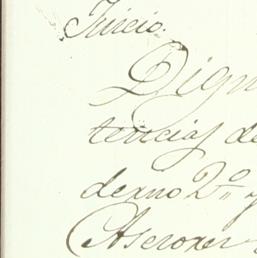 Juicio.
Dign
tencias de
derno 2º y
Asesores